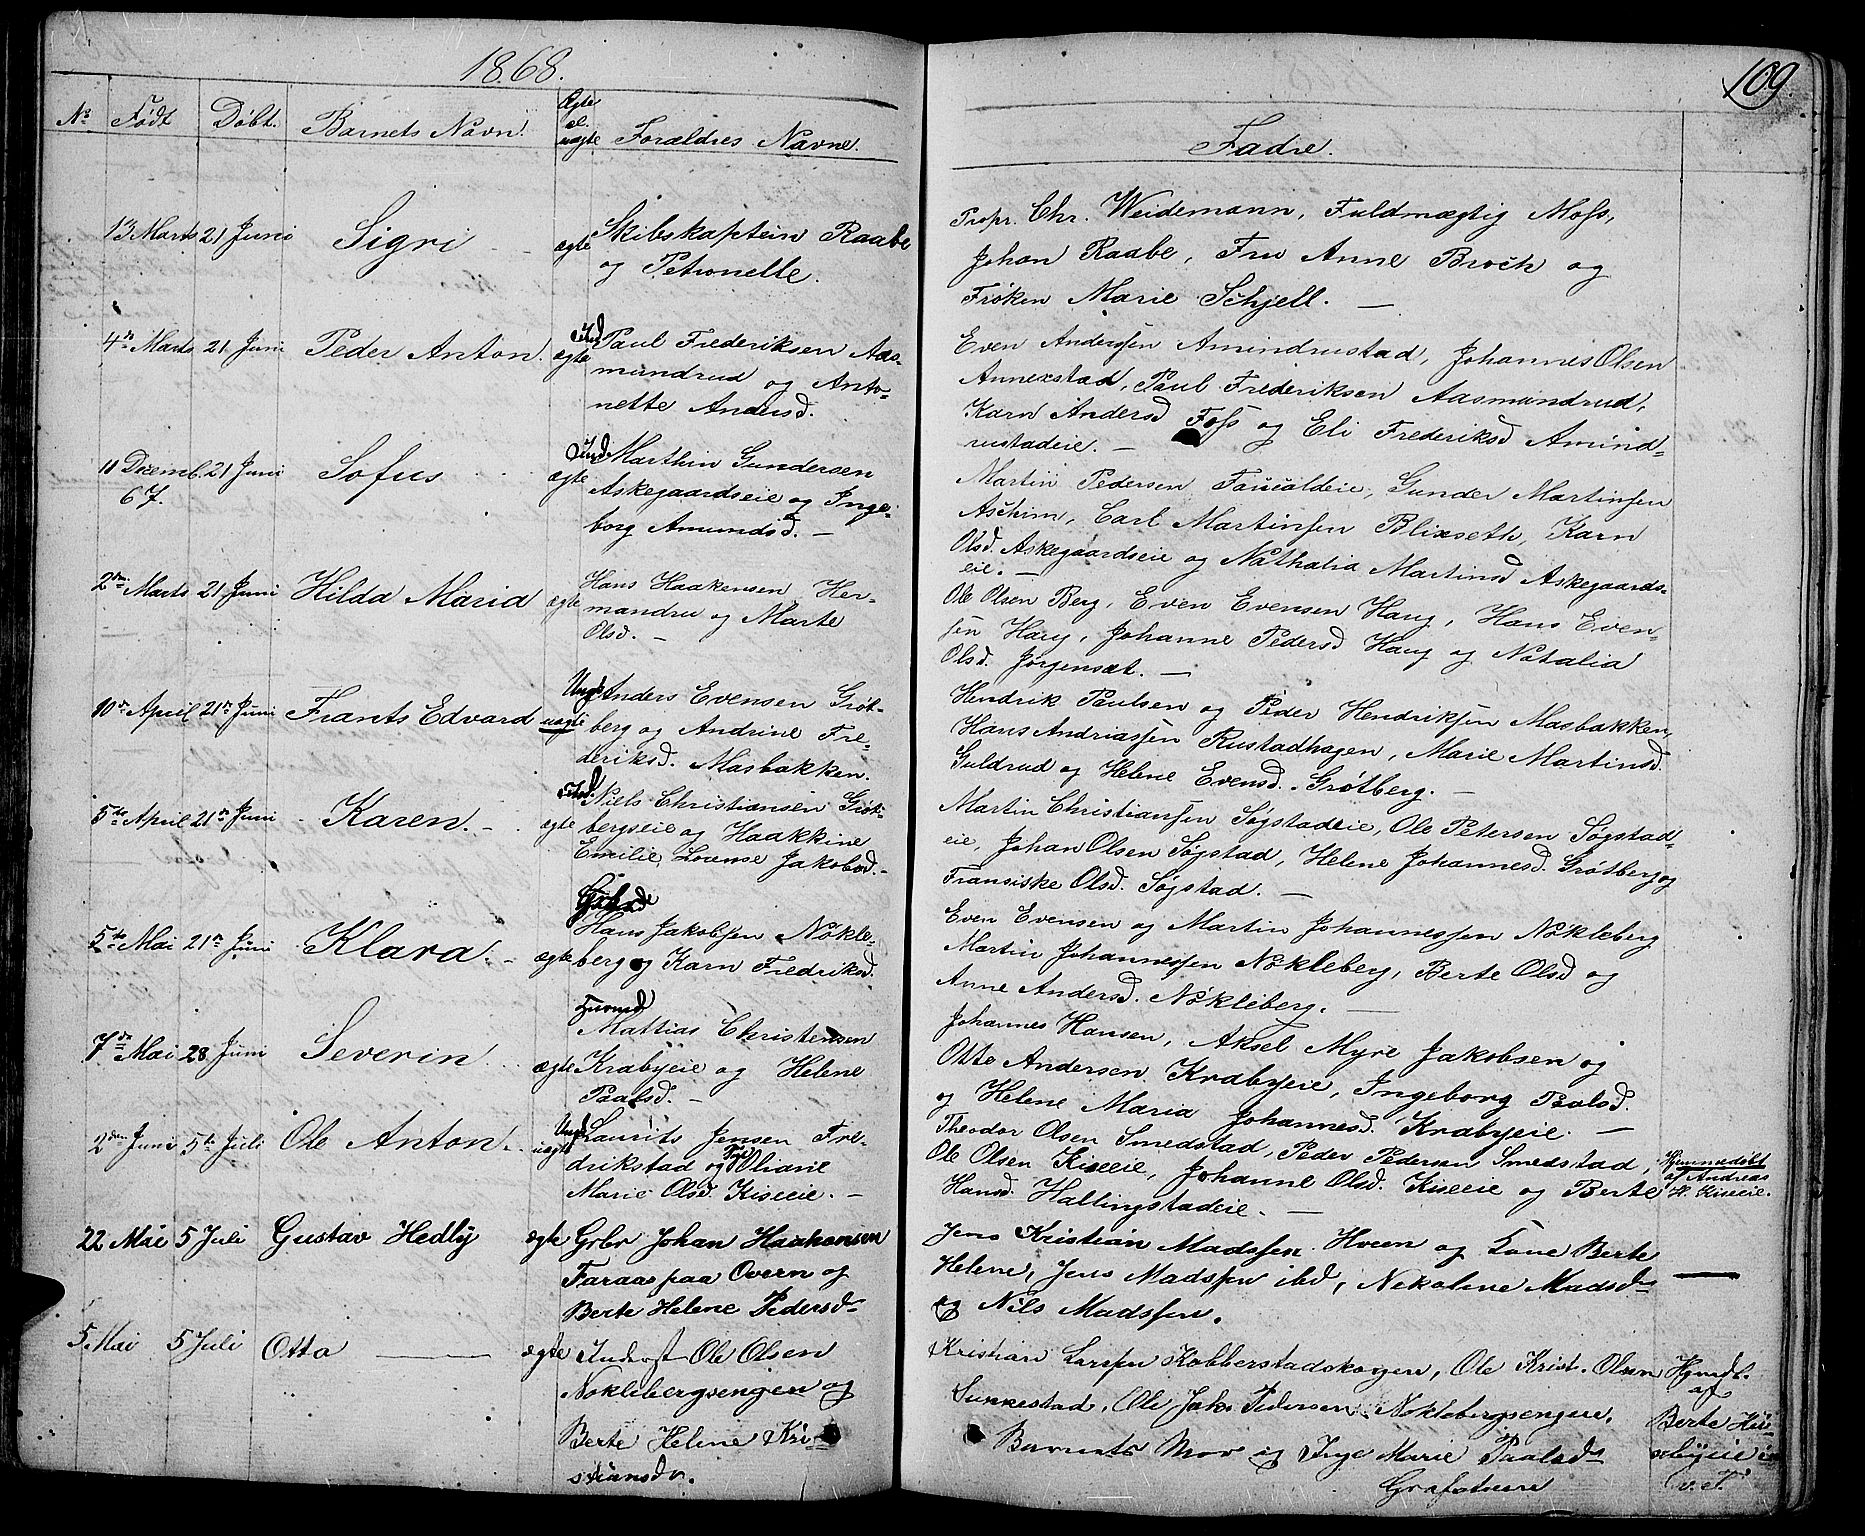 1868.
109
No Født Døbt. Barnets Navn. Ægte el. uægte Forældres Navne.
Fadre.
13 Marts 21 Juni Sigri ægte Skibskaptein Raabe
og Petronelle.
Propr. Chr. Weidemann, Fuldmægtig Moss,
Johan Raabe, Fru Anne Broch og
Frøken Marie Schjell. —
4de Marts 21 Juni Peder Anton. Ind. ægte Paul Frederiksen Aas-
mundrud og Anto-
nette Andersd.
Even Anderssen Amindrustad, Johannes Olsen
Annexstad, Paul Frederiksen Aasmundrud,
Karn Andersd Foss og Eli Frederiksd Amind-
rustadeie. —
11 Decemb. 67. 21 Juni Sofus Ind. ægte Marthin Gundersen
Askegaardseie og Inge-
borg Amundsd. —
Martin Pedersen Faucaldeie, Gunder Martinsen
Aschim, Carl Martinsen Blixseth, Karn
Olsd. Askegaardseie og Nathalia Martinsd Askegaards-
eie. —
2den Marts 21 Juni Hilda Maria ægte Hans Haakensen Her-
mandru og Marte
Olsd. —
Ole Olsen Berg, Even Evensen Haug, Hans Even-
sen Haug, Johanne Pedersd Haug og Natalia
Olsd. Jørgensæt. —
10de April 21de Juni Frants Edvard Ungk. uægte Anders Evensen Grøt-
berg og Andrine Fre-
deriksd. Masbakken.
Hendrik Paulsen og Peder Hendriksen Masbakken,
Hans Andriassen Rustadhagen, Marie Martinsd.
Guldrud og Helene Evensd. Grøtberg. —
5te April 21de Juni Karen. — Ind. ægte Niels Christiansen Grøt-
bergseie og Haakkine
Emilie Lovense Jakobsd. —
Martin Christiansen Søgstadeie, Ole Petersen Søgstad-
eie, Johan Olsen Søgstad, Helene Johannesd. Grøtberg og
Fransiske Olsd. Søgstad. —
5te Mai 21de Juni Klara. — ægte
Hans Jakobsen Nøkle-
berg og Karn Fredriksd.
Even Evensen og Martin Johannessen Nøkleberg
Martin Johannessen Nøkleberg, Berte Olsd og
Anne Andersd. Nøkleberg. —
7de Mai 28 Juni Severin ægte
Mattias Christensen
Krabyeie og Helene
Paalsd. —
Johannes Hansen, Aksel Myre Jakobsen og
Otte Andersen Krabyeie, Ingeborg Paalsd.
og Helene Maria Johannesd. Krabyeie. —
2den Juni 5te Juli Ole Anton. Ungk. uægte Laurits Jensen Fre-
drikstad og Pige Oliane
Marie Olsd. Kiseeie. —
Theodor Olsen Smedstad, Peder Pedersen Smedstad,
Ole Olsen Kiseeie, Johanne Olsd. Kiseeie og Berte
Hansd. Hallingstadeie. —
Hjemmedøbt
af Andreas
H. Kiseeie.
22 Mai 5 Juli Gustav Hedly ægte Grbr Johan Haakonsen
Faraas paa Overn og
Berte Helene Pedersd-
Jens Kristian Madssen Hveen og Kone Berte
Helene, Jens Madssen ibd, Nekoline Madsd-
og Nils Madssen.
5. Mai 5 Juli Otto — ægte Inderst Ole Olsen
Noklebergsengen og
Berte Helene Kri-
stiansdr.
Kristian Larssen Kobberstadskogen, Ole Krist. Olsen
Sukkestad, Ole Jaks Pedersen Noklebergsengeie,
Barnets Mor og Inge Marie Paalsd-
Grafstuen
Hjmdt.
af
Berte